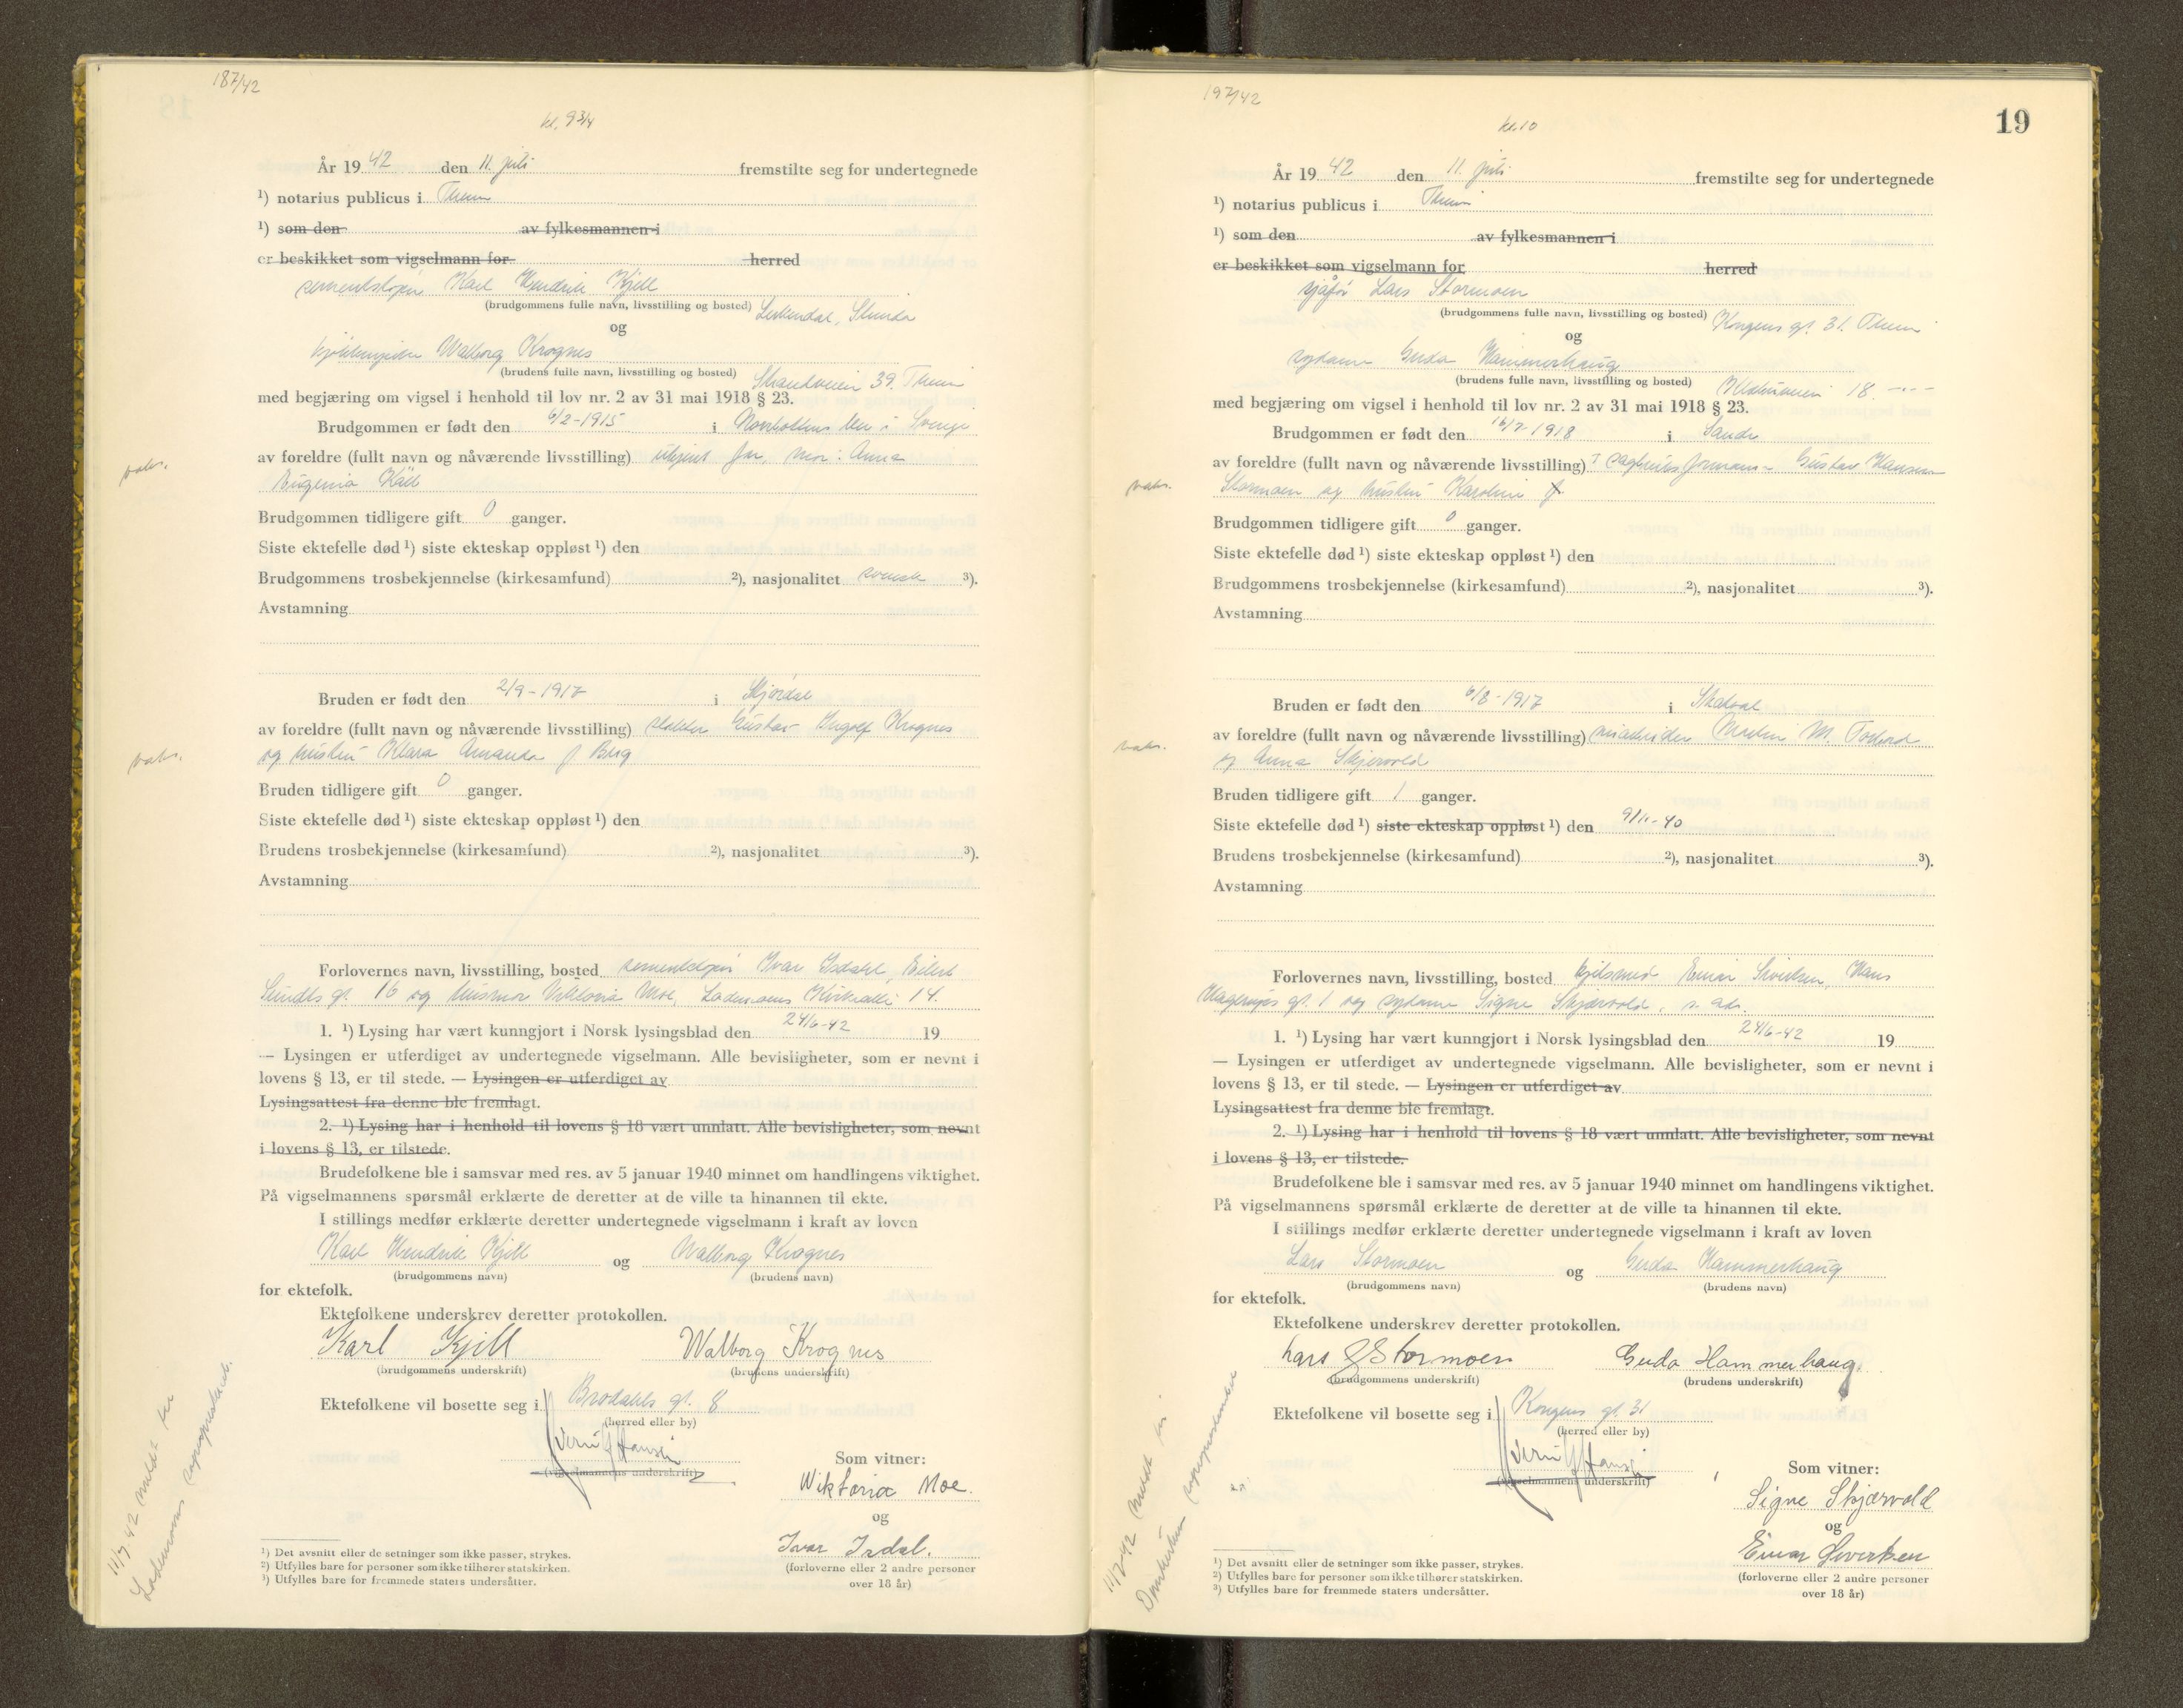 187/42
kl. 9 3/4
År 19 42 den 11. juli fremstilte seg for undertegnede
¹) notarius publicus i Thum
¹) som den av fylkesmannen i
er beskikket som vigselmann for herred
Karl Hendrik Kjell
(brudgommens fulle navn, livsstilling og bosted)
og
Walborg Krognes
(brudens fulle navn, livsstilling og bosted) Strandveien 39.
med begjæring om vigsel i henhold til lov nr. 2 av 31 mai 1918 § 23.
Brudgommen er født den 6/2-1915 i Norrbottens len i Sverige
av foreldre (fullt navn og nåværende livsstilling) ukjent far, mor: Anna
Eugenia Käll
Brudgommen tidligere gift 0 ganger.
Siste ektefelle død ¹) siste ekteskap oppløst ¹) den
Brudgommens trosbekjennelse (kirkesamfund) ²), nasjonalitet svensk ³).
Avstamning
vaks.
Bruden er født den 2/9-1917 i Stjørdal
av foreldre (fullt navn og nåværende livsstilling) Gustav Ingolf Krognes
og hustru Klara Amanda f Berg
vaks.
Bruden tidligere gift 0 ganger.
Siste ektefelle død ¹) siste ekteskap oppløst ¹) den
Brudens trosbekjennelse (kirkesamfund) ²), nasjonalitet ³).
Avstamning
Forlovernes navn, livsstilling, bosted Ivar Isdahl, Eilert
Sundts gt. 16 og husmor Viktoria Moe, Lademoens Kirkealle 14.
1. ¹) Lysing har vært kunngjort i Norsk lysingsblad den 24/6-42 19
— Lysingen er utferdiget av undertegnede vigselmann. Alle bevisligheter, som er nevnt i
lovens § 13, er til stede. — Lysingen er utferdiget av
Lysingsattest fra denne ble fremlagt.
2. ¹) Lysing har i henhold til lovens § 18 vært unnlatt. Alle bevisligheter, som nevnt
i lovens § 13, er tilstede.
Brudefolkene ble i samsvar med res. av 5 januar 1940 minnet om handlingens viktighet.
På vigselmannens spørsmål erklærte de deretter at de ville ta hinannen til ekte.
I stillings medfør erklærte deretter undertegnede vigselmann i kraft av loven
Karl Hendrik Kjell og Walborg Krognes
(brudgommens navn) (brudens navn)
for ektefolk.
Ektefolkene underskrev deretter protokollen.
Karl Kjell Walborg Krognes
(brudgommens underskrift) (brudens underskrift)
Ektefolkene vil bosette seg i Brødahls gt. 8
(herred eller by)
(vigselmannens underskrift)
Som vitner:
Wiktoria Moe.
og
Ivar Isdal.
(forloverne eller 2 andre personer
over 18 år)
¹) Det avsnitt eller de setninger som ikke passer, strykes.
²) Utfylles bare for personer som ikke tilhører statskirken.
³) Utfylles bare for fremmede staters undersåtter.
11/7-42 meldt til
Lademoens sogneprestemb.
197/42
kl. 10
19
År 19 42 den 11. juli fremstilte seg for undertegnede
¹) notarius publicus i Thum
¹) som den av fylkesmannen i
er beskikket som vigselmann for herred
sjåfør Lars Stormoen
(brudgommens fulle navn, livsstilling og bosted) Kongens gt. 31.
og
sydame Gerda Hammerhaug
(brudens fulle navn, livsstilling og bosted) 18. -"-
med begjæring om vigsel i henhold til lov nr. 2 av 31 mai 1918 § 23.
Brudgommen er født den 1918 i
av foreldre (fullt navn og nåværende livsstilling) Gustav Hansen
Stormoen og hustru Karoline f
vaks.
Brudgommen tidligere gift 0 ganger.
Siste ektefelle død ¹) siste ekteskap oppløst ¹) den
Brudgommens trosbekjennelse (kirkesamfund) ²), nasjonalitet ³).
Avstamning
Bruden er født den 6/8-1917 i Skatval
av foreldre (fullt navn og nåværende livsstilling) M. Forbord
og Anna Skjervold
vaks.
Bruden tidligere gift 1 ganger.
Siste ektefelle død ¹) siste ekteskap oppløst ¹) den 9/11-40
Brudens trosbekjennelse (kirkesamfund) ²), nasjonalitet ³).
Avstamning
Forlovernes navn, livsstilling, bosted Einar Sivertsen, Hans
Hagerups gt. 1 og sydame Signe Skjærvold, s. adr.
1. ¹) Lysing har vært kunngjort i Norsk lysingsblad den 24/6-42 19
— Lysingen er utferdiget av undertegnede vigselmann. Alle bevisligheter, som er nevnt i
lovens § 13, er til stede. — Lysingen er utferdiget av
Lysingsattest fra denne ble fremlagt.
2. ¹) Lysing har i henhold til lovens § 18 vært unnlatt. Alle bevisligheter, som nevnt
i lovens § 13, er tilstede.
Brudefolkene ble i samsvar med res. av 5 januar 1940 minnet om handlingens viktighet.
På vigselmannens spørsmål erklærte de deretter at de ville ta hinannen til ekte.
I stillings medfør erklærte deretter undertegnede vigselmann i kraft av loven
Lars Stormoen og Gerda Hammerhaug
(brudgommens navn) (brudens navn)
for ektefolk.
Ektefolkene underskrev deretter protokollen.
Lars Stormoen Gerda Hammerhaug.
(brudgommens underskrift) (brudens underskrift)
Ektefolkene vil bosette seg i Kongens gt 31
(herred eller by)
(vigselmannens underskrift)
Som vitner:
Signe Skjærvold
og
Einar Sivertsen
(forloverne eller 2 andre personer
over 18 år)
¹) Det avsnitt eller de setninger som ikke passer, strykes.
²) Utfylles bare for personer som ikke tilhører statskirken.
³) Utfylles bare for fremmede staters undersåtter.
11/7-42 meldt til
Domkirkens sogneprestembet